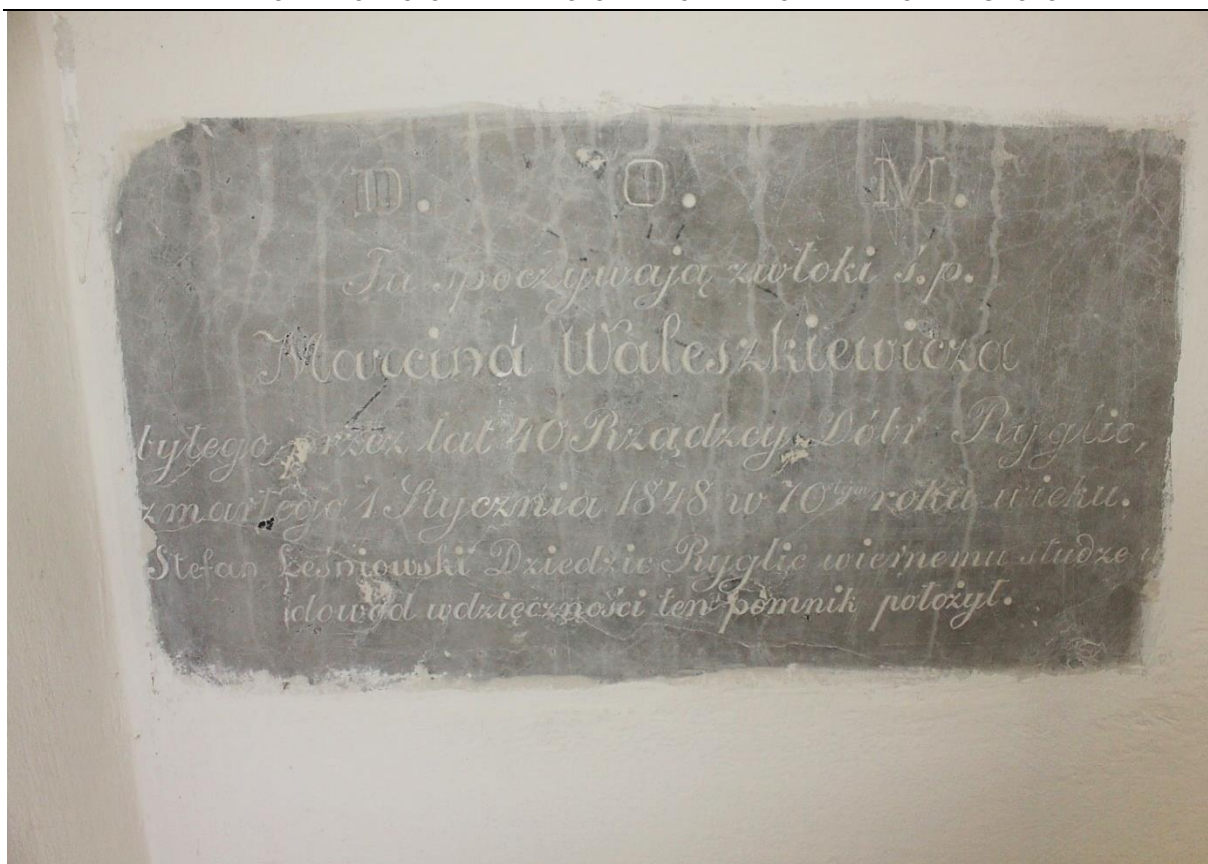 D. O. M.
Tu spoczywają zwłoki ś.p.
Marcina Waleszkiewicza
byłego przez lat 40 Rządzcy Dóbr Ryglic,
zmarłego 1 Stycznia 1848 w 70tym roku wieku.
Stefan Leśniowski Dziedzic Ryglic wiernemu słudze w
dowód wdzięczności ten pomnik położył.